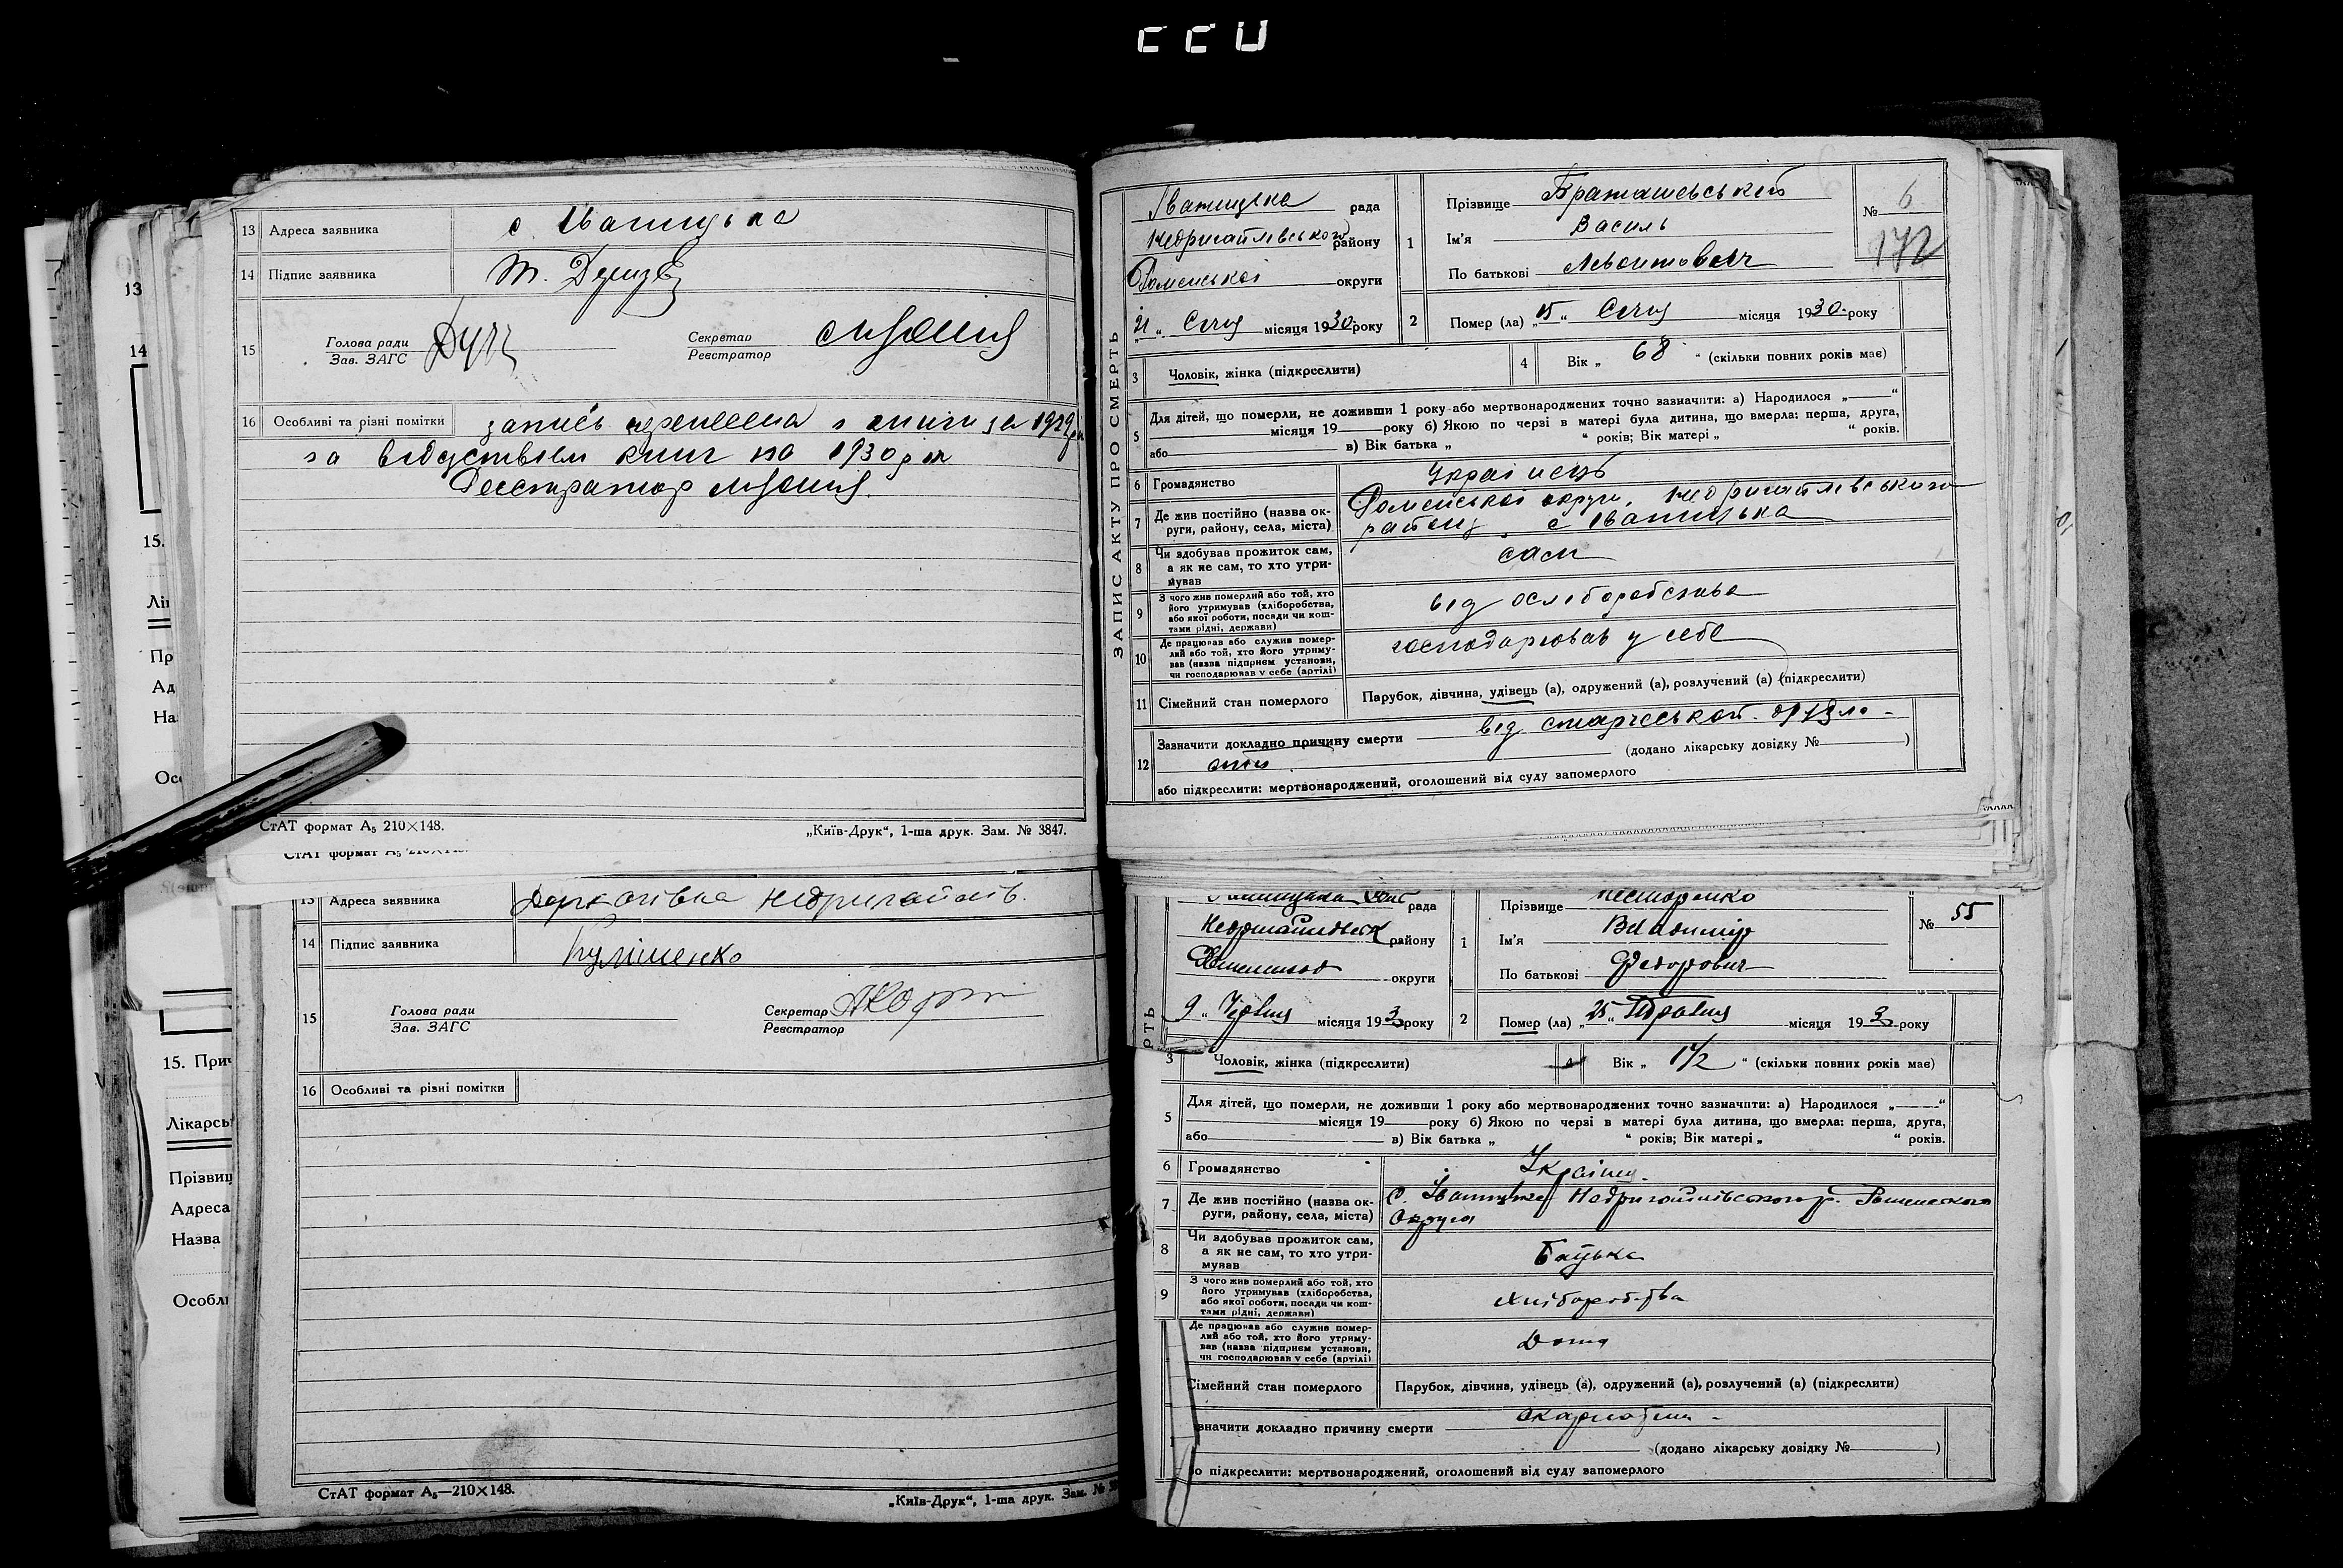 13 Адреса заявника с Іваницька
14 Підпис заявника
15 Голова ради
Зав. ЗАГС
Секретар
Реєстратор
16 Особливі та різні помітки запись з книги за 1929
за відсутствієм книг на 1930 рік
Реєстратор
СтАТ формат А₅ 210×148.
„Київ-Друк“, 1-ша друк. Зам. № 3847.
13 Адреса заявника
14 Підпис заявника Куліщенко
15 Голова ради
Зав. ЗАГС
Секретар
Реєстратор
16 Особливі та різні помітки
СтАТ формат А₅—210×148.
„Київ-Друк“, 1-ша друк. Зам. №
13
14
15.
Лі
Пр
Ад
На
Ос
15. Прич
Лікарсь
Прізвищ
Адреса
Назва
Особл
ЗАПИС АКТУ ПРО СМЕРТЬ
Іваницька рада
Недригайлівського району
Роменської округи
21 „ Січня місяця 1930 року
1 Прізвище Браташевський
Ім'я Василь
По батькові Левонтович
№ 6
172
2 Помер (ла) „15“ Січня місяця 1930 року
3 Чоловік, жінка (підкреслити)
4 Вік „ 68 “ (скільки повних років має)
5 Для дітей, що померли, не доживши 1 року або мертвонароджених точно зазначити: а) Народилося „——“
місяця 19 року б) Якою по черзі в матері була дитина, що вмерла: перша, друга,
або в) Вік батька „ “ років; Вік матері „ “ років.
6 Громадянство Українець
7 Де жив постійно (назва округи, району, села, міста) Роменської округи, Недригайлівського
району с Іваницька
8 Чи здобував прожиток сам, а як не сам, то хто утримував сам
9 З чого жив померлий або той, хто його утримував (хліборобства, або якої роботи, посади чи коштами рідні, держави) від
10 Де працював або служив померлий або той, хто його утримував (назва підприєм установи, чи господарював у себе (артілі) господарював у себе
11 Сімейний стан померлого Парубок, дівчина, удівець (а), одружений (а), розлучений (а) (підкреслити)
12 Зазначити докладно причину смерти від старческой
(додано лікарську довідку № )
або підкреслити: мертвонароджений, оголошений від суду запомерлого
РТЬ
рада
району
округи
9 „ Червня місяця 193 року
1 Прізвище Нестеренко
Ім'я Владимир
По батькові Федорович
№ 55
2 Помер (ла) „25“ Травня місяця 193 року
3 Чоловік, жінка (підкреслити)
4 Вік „ 1½ “ (скільки повних років має)
5 Для дітей, що померли, не доживши 1 року або мертвонароджених точно зазначити: а) Народилося „——“
місяця 19 року б) Якою по черзі в матері була дитина, що вмерла: перша, друга,
або в) Вік батька „ “ років; Вік матері „ “ років.
6 Громадянство
7 Де жив постійно (назва округи, району, села, міста) С. Недригайлівського р.
Округи
8 Чи здобував прожиток сам, а як не сам, то хто утримував Батько
9 З чого жив померлий або той, хто його утримував (хліборобства, або якої роботи, посади чи коштами рідні, держави) Хліборобства
Де працював або служив померлий або той, хто його утримував (назва підприєм установи, чи господарював у себе (артілі) Дома
Сімейний стан померлого Парубок, дівчина, удівець (а), одружений (а), розлучений (а) (підкреслити)
значити докладно причину смерти
(додано лікарську довідку № )
бо підкреслити: мертвонароджений, оголошений від суду запомерлого